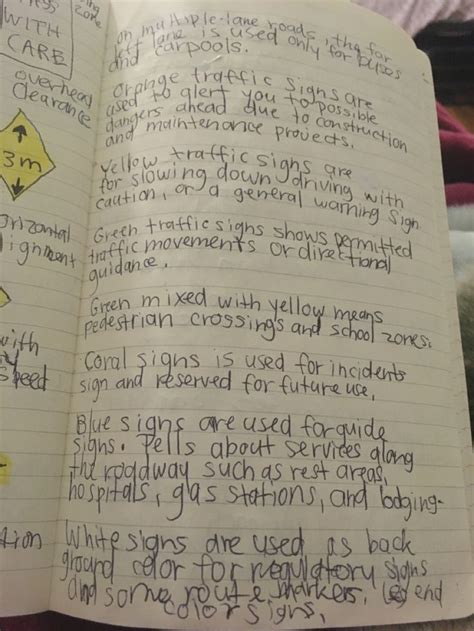 WITH
CARE
zone
overhead
clearance
3m
alignment
with
speed
on multiple-lane roads, the far
left lane is used only for buses
and carpools.
Orange traffic signs are
used to alert you to possible
dangers ahead due to construction
and maintenance provects.
Yellow traffic signs are
for slowing down driving with
caution, or a general warning sign
Green traffic signs shows permitted
traffic movements or directional
guidance.
Green mixed with yellow means
pedestrian crossings and school zones.
Coral signs is used for incidents
sign and reserved for future use,
Blue signs are used for guide
signs. Tells about services along
the roadway such as rest areas,
hospitals, gas stations, and lodging.
White signs are used as back
ground color for regulatory signs
and some route markers. legend
color signs.